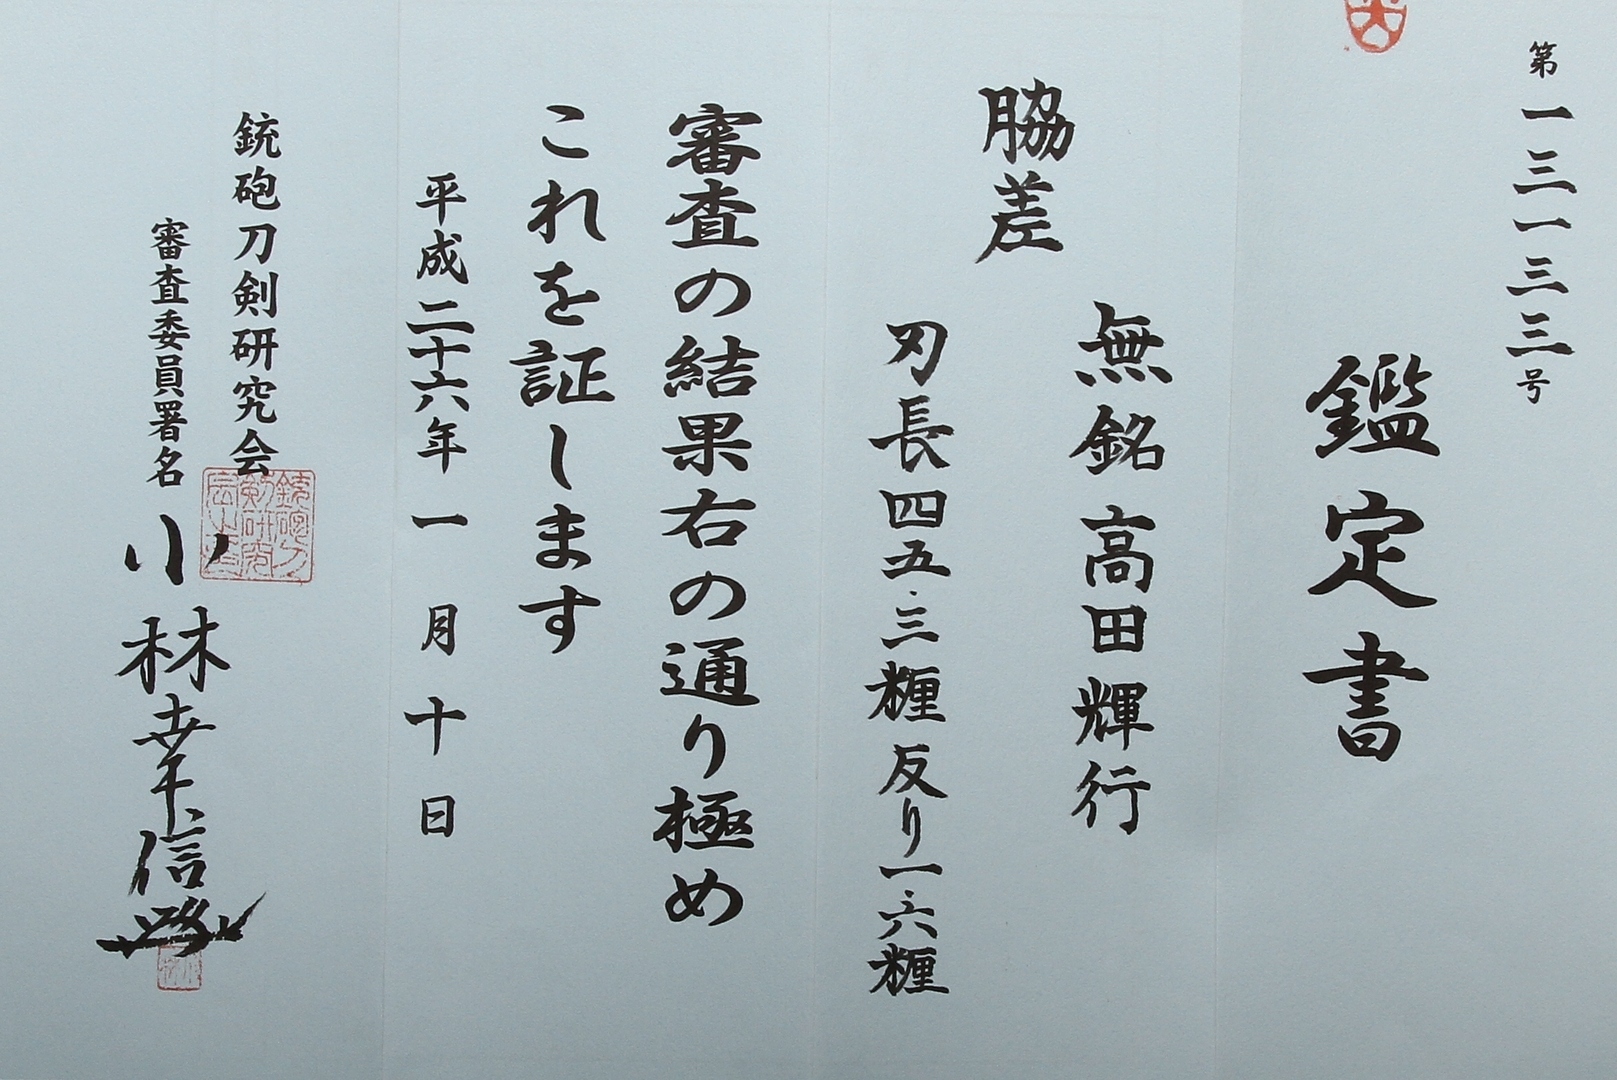 第一三一三三号
鑑定書
無銘高田輝行
脇差
刃長四五.三糎反り一.六糎
審査の結果右の通り極め
これを証します
平成二十六年一月十日
銃砲刀剣研究会
審査委員署名 小林幸信